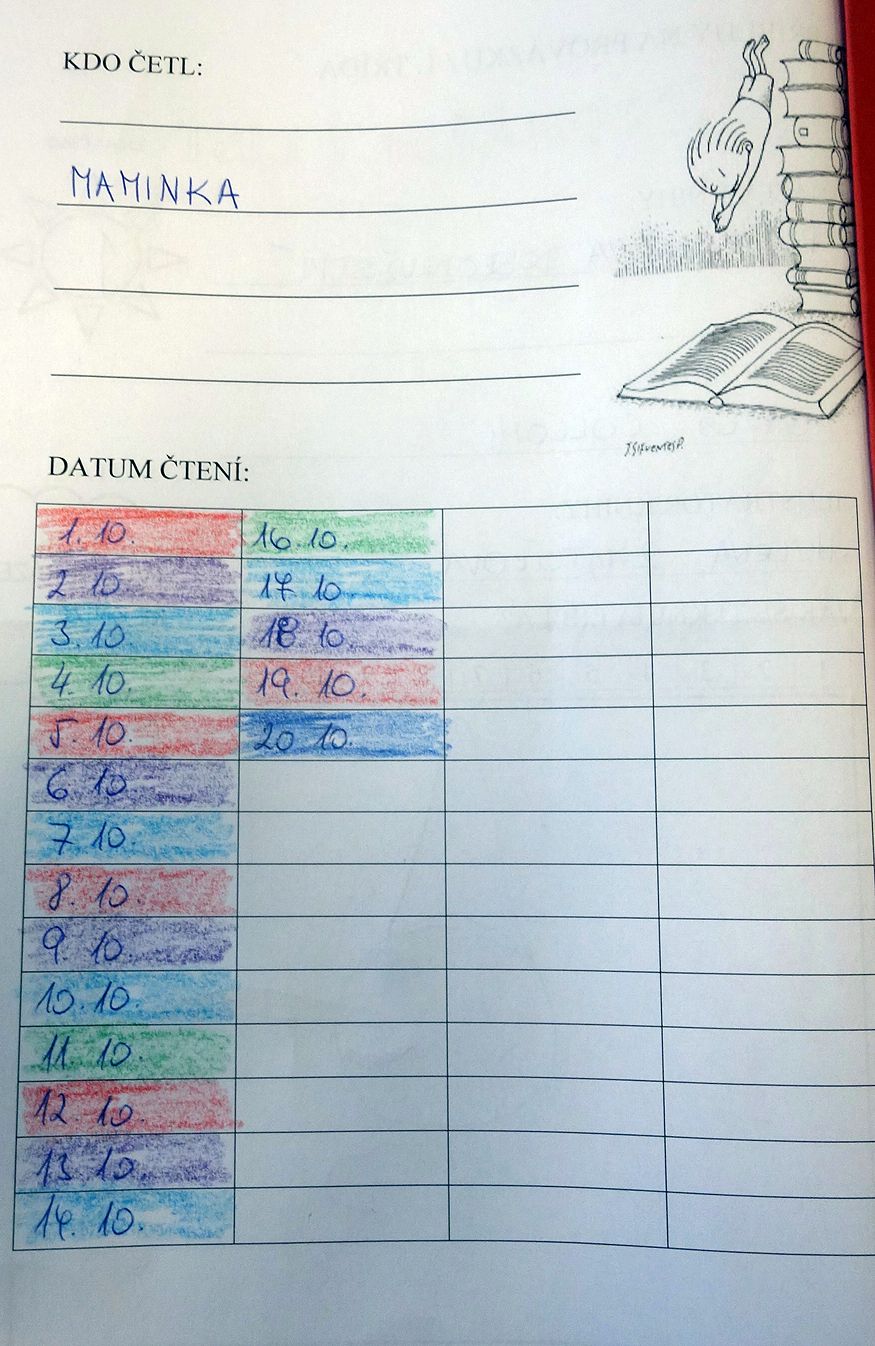 KDO ČETL:
MAMINKA
DATUM ČTENÍ:
1. 10. 16. 10.
2 10. 17. 10.
3. 10 18 10.
4. 10. 19. 10.
5. 10. 20 10.
6 10.
7 10.
8. 10.
9. 10.
10. 10.
11. 10.
12. 10.
13 10.
14. 10.